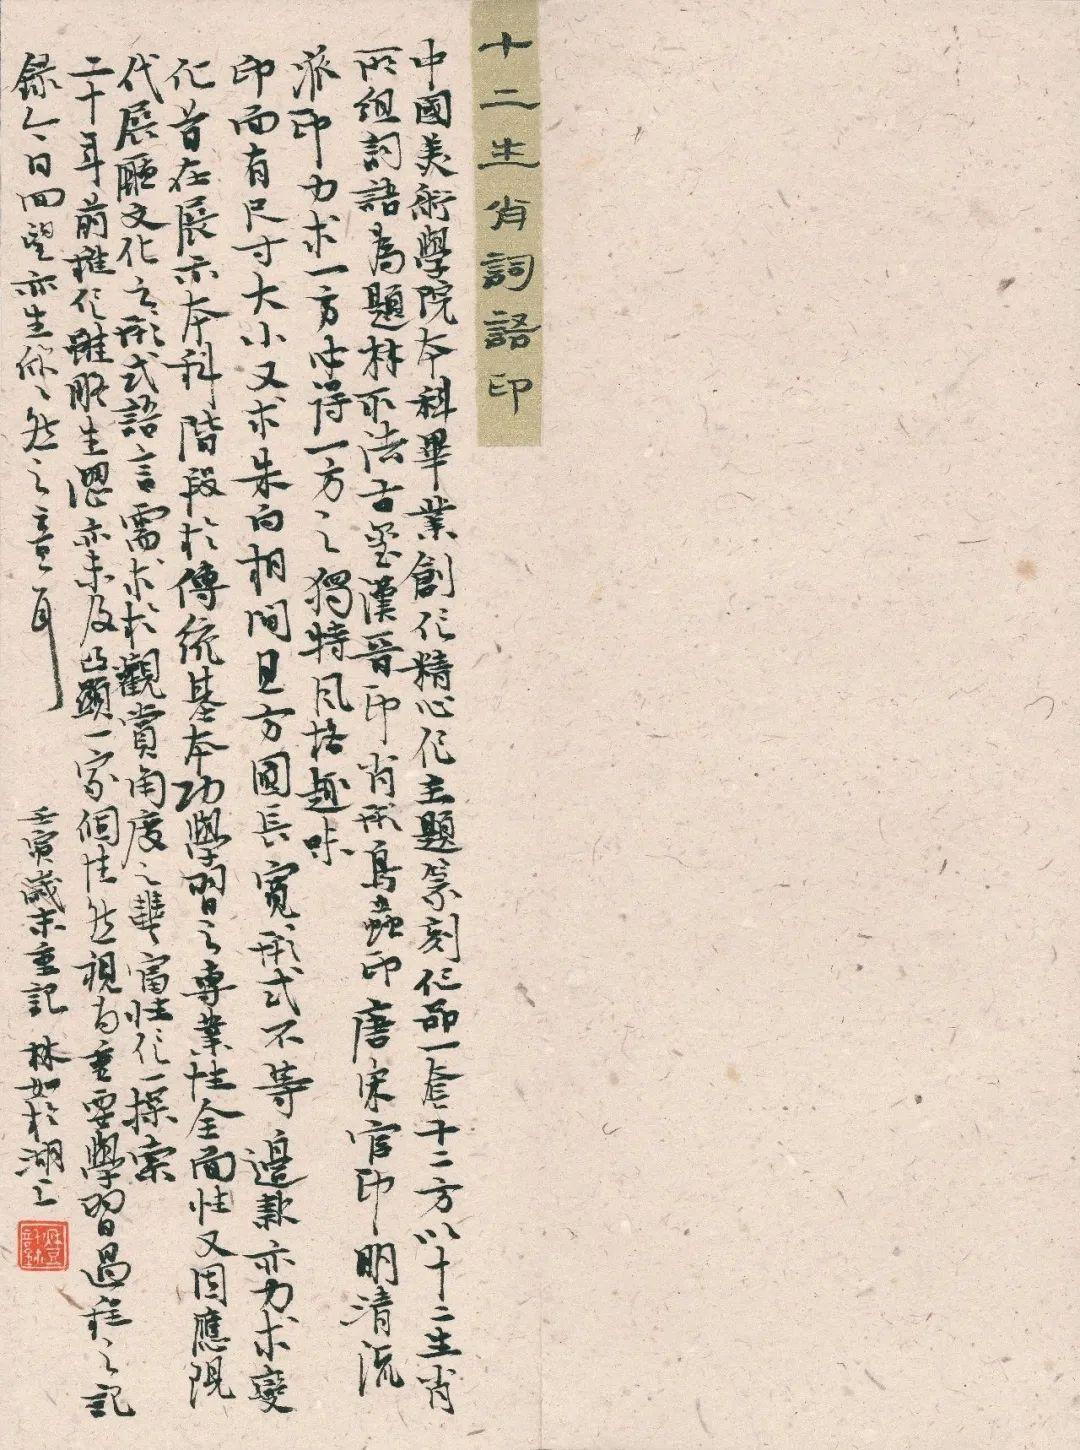 十二生肖詞語印
中國美術學院本科畢業創作精心作主題篆刻作品一套十二方以十二生肖
所組詞語為題材取法古璽漢晉印肖形鳥蟲印唐宋官印明清流
派印力求一方求得一方之獨特風格趣味
印面有尺寸大小又求朱白相間且方圓長寬形式不等邊款亦力求變
化旨在展示本科階段於傳統基本功學習之專業性全面性又因應現
代展廳文化之形式語言需求於觀賞角度之豐富性作一探索
二十年前推作雖略生澀亦未及凸顯一家個性然視為重要學習過程之記
錄今日回望亦生欣欣然之意耳
壬寅歲末重記 林如於湖上